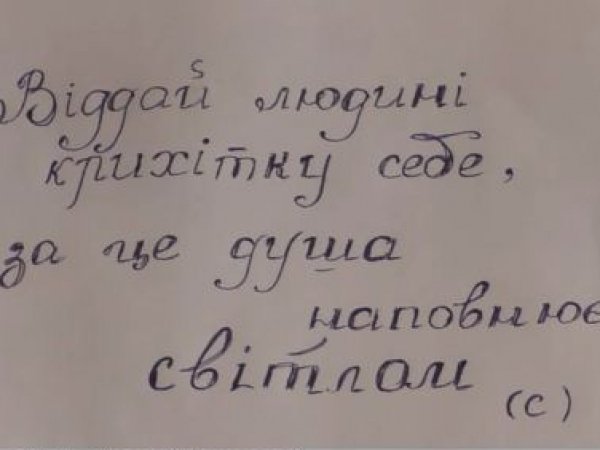 Віддай людині
крихітку себе,
за це душа
наповнює
світлом
(с)